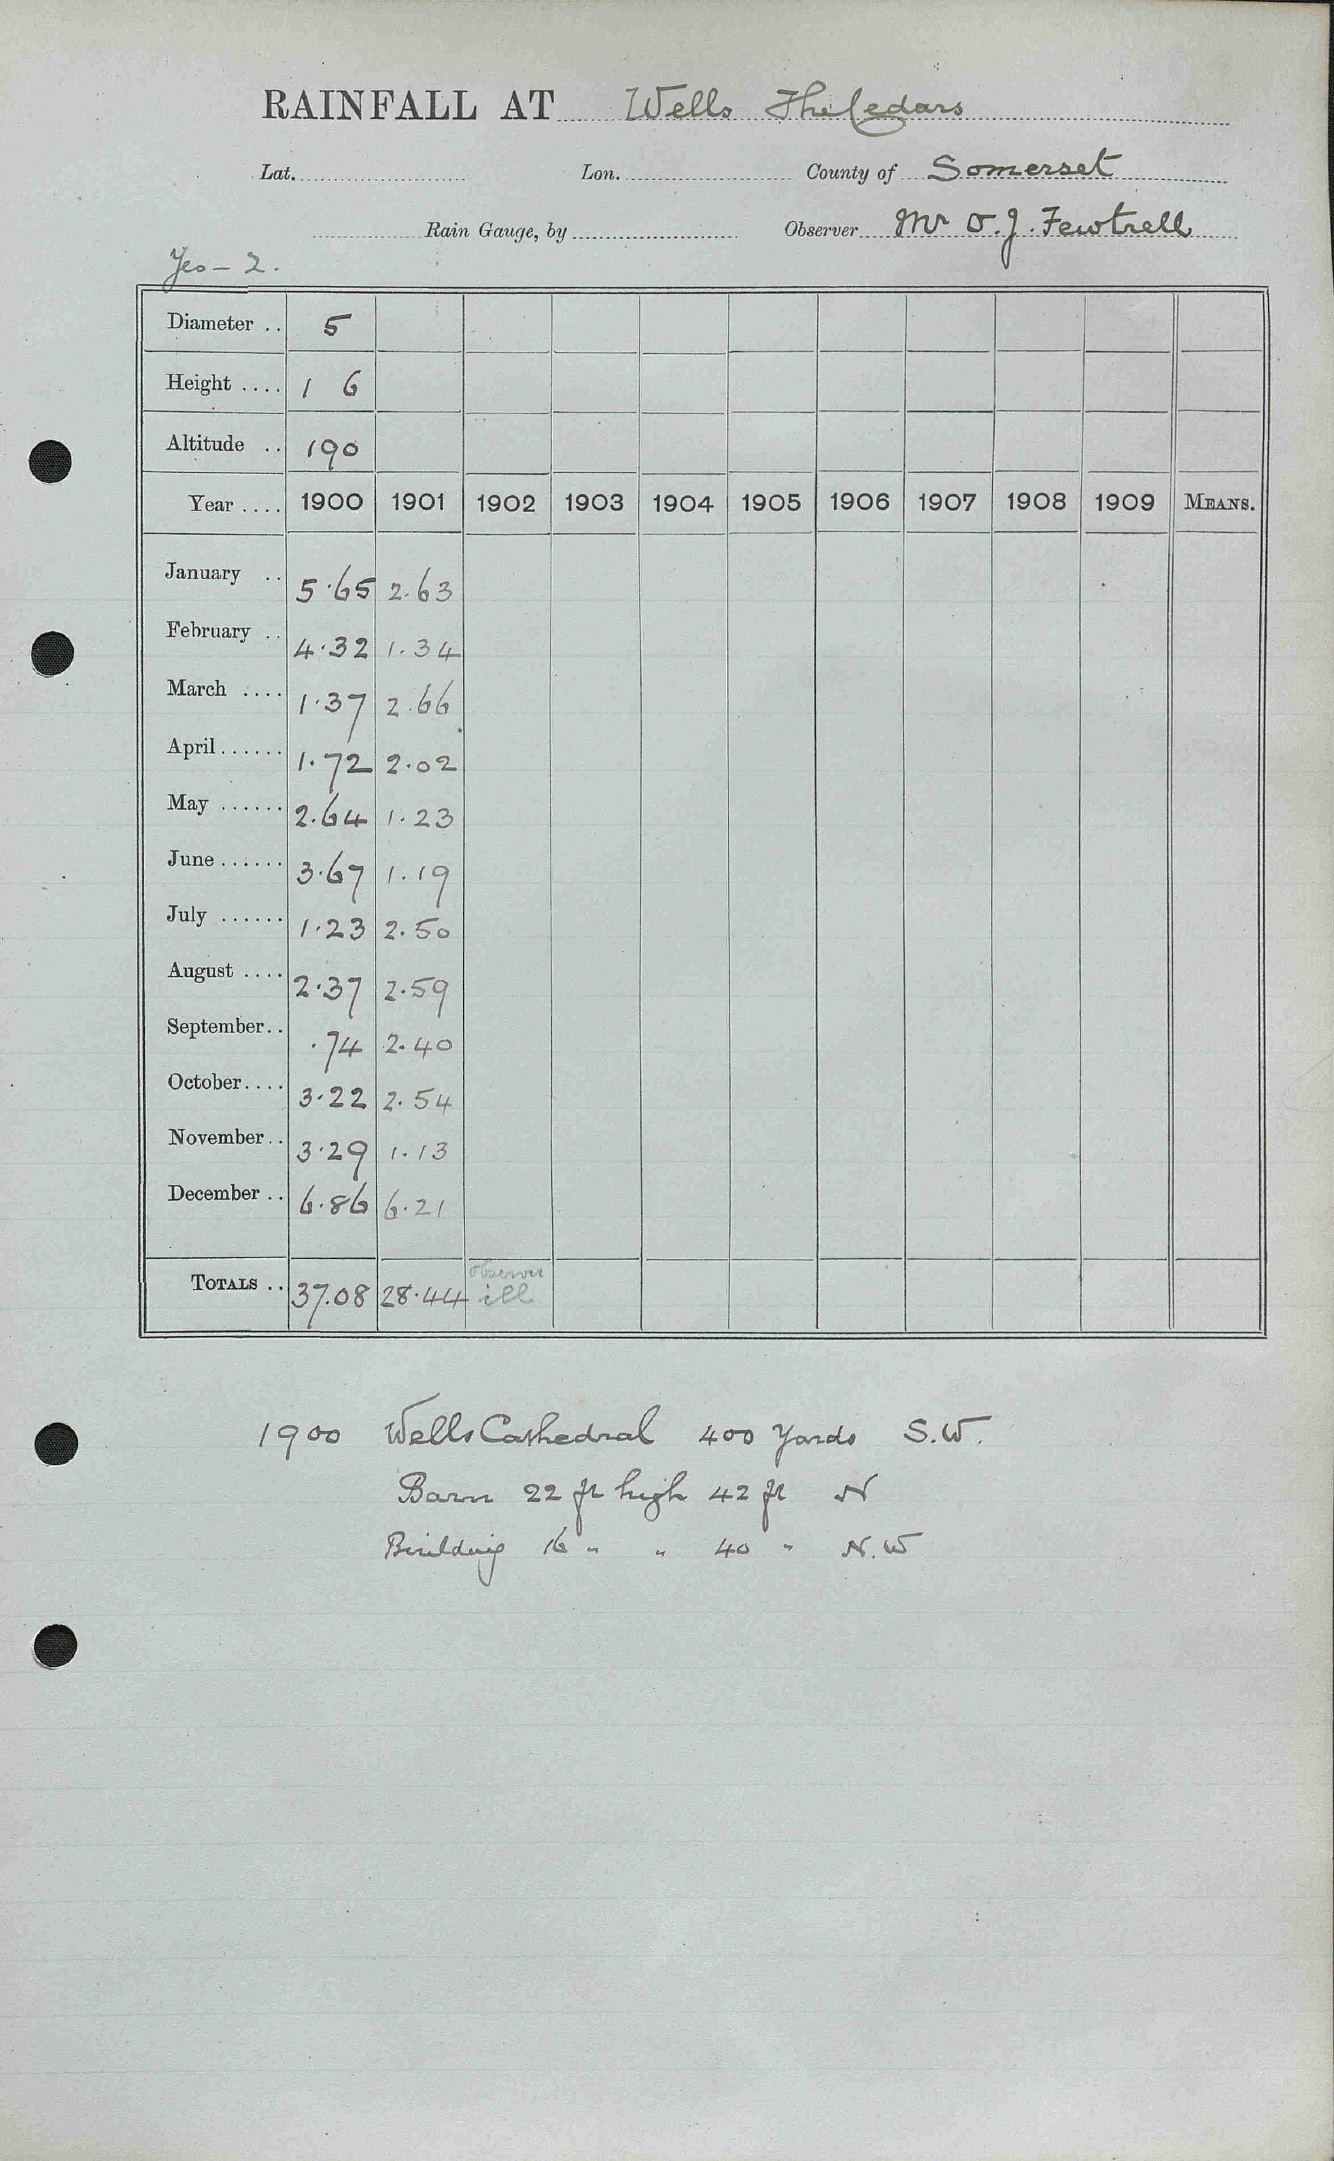 RAINFALL AT Wells The Cedars
Lat. Lon. County of Somerset
Rain Gauge, by Observer Mr O. J. Fewtrell
Yeo - 2.
Diameter .. 5
Height .... 1 6
Altitude .. 190
Year .... 1900 1901 1902 1903 1904 1905 1906 1907 1908 1909 MEANS.
January .. 5.65 2.63
February .. 4.32 1.34
March .... 1.37 2.66
April ...... 1.72 2.02
May ...... 2.64 1.23
June ...... 3.67 1.19
July ...... 1.23 2.50
August .... 2.37 2.59
September.. .74 2.40
October.... 3.22 2.54
November.. 3.29 1.13
December .. 6.86 6.21
TOTALS .. 37.08 28.44 observer ill
1900 Wells Cathedral 400 yards S.W.
Barn 22 ft high 42 ft N
Building 16 " " 40 " N.W